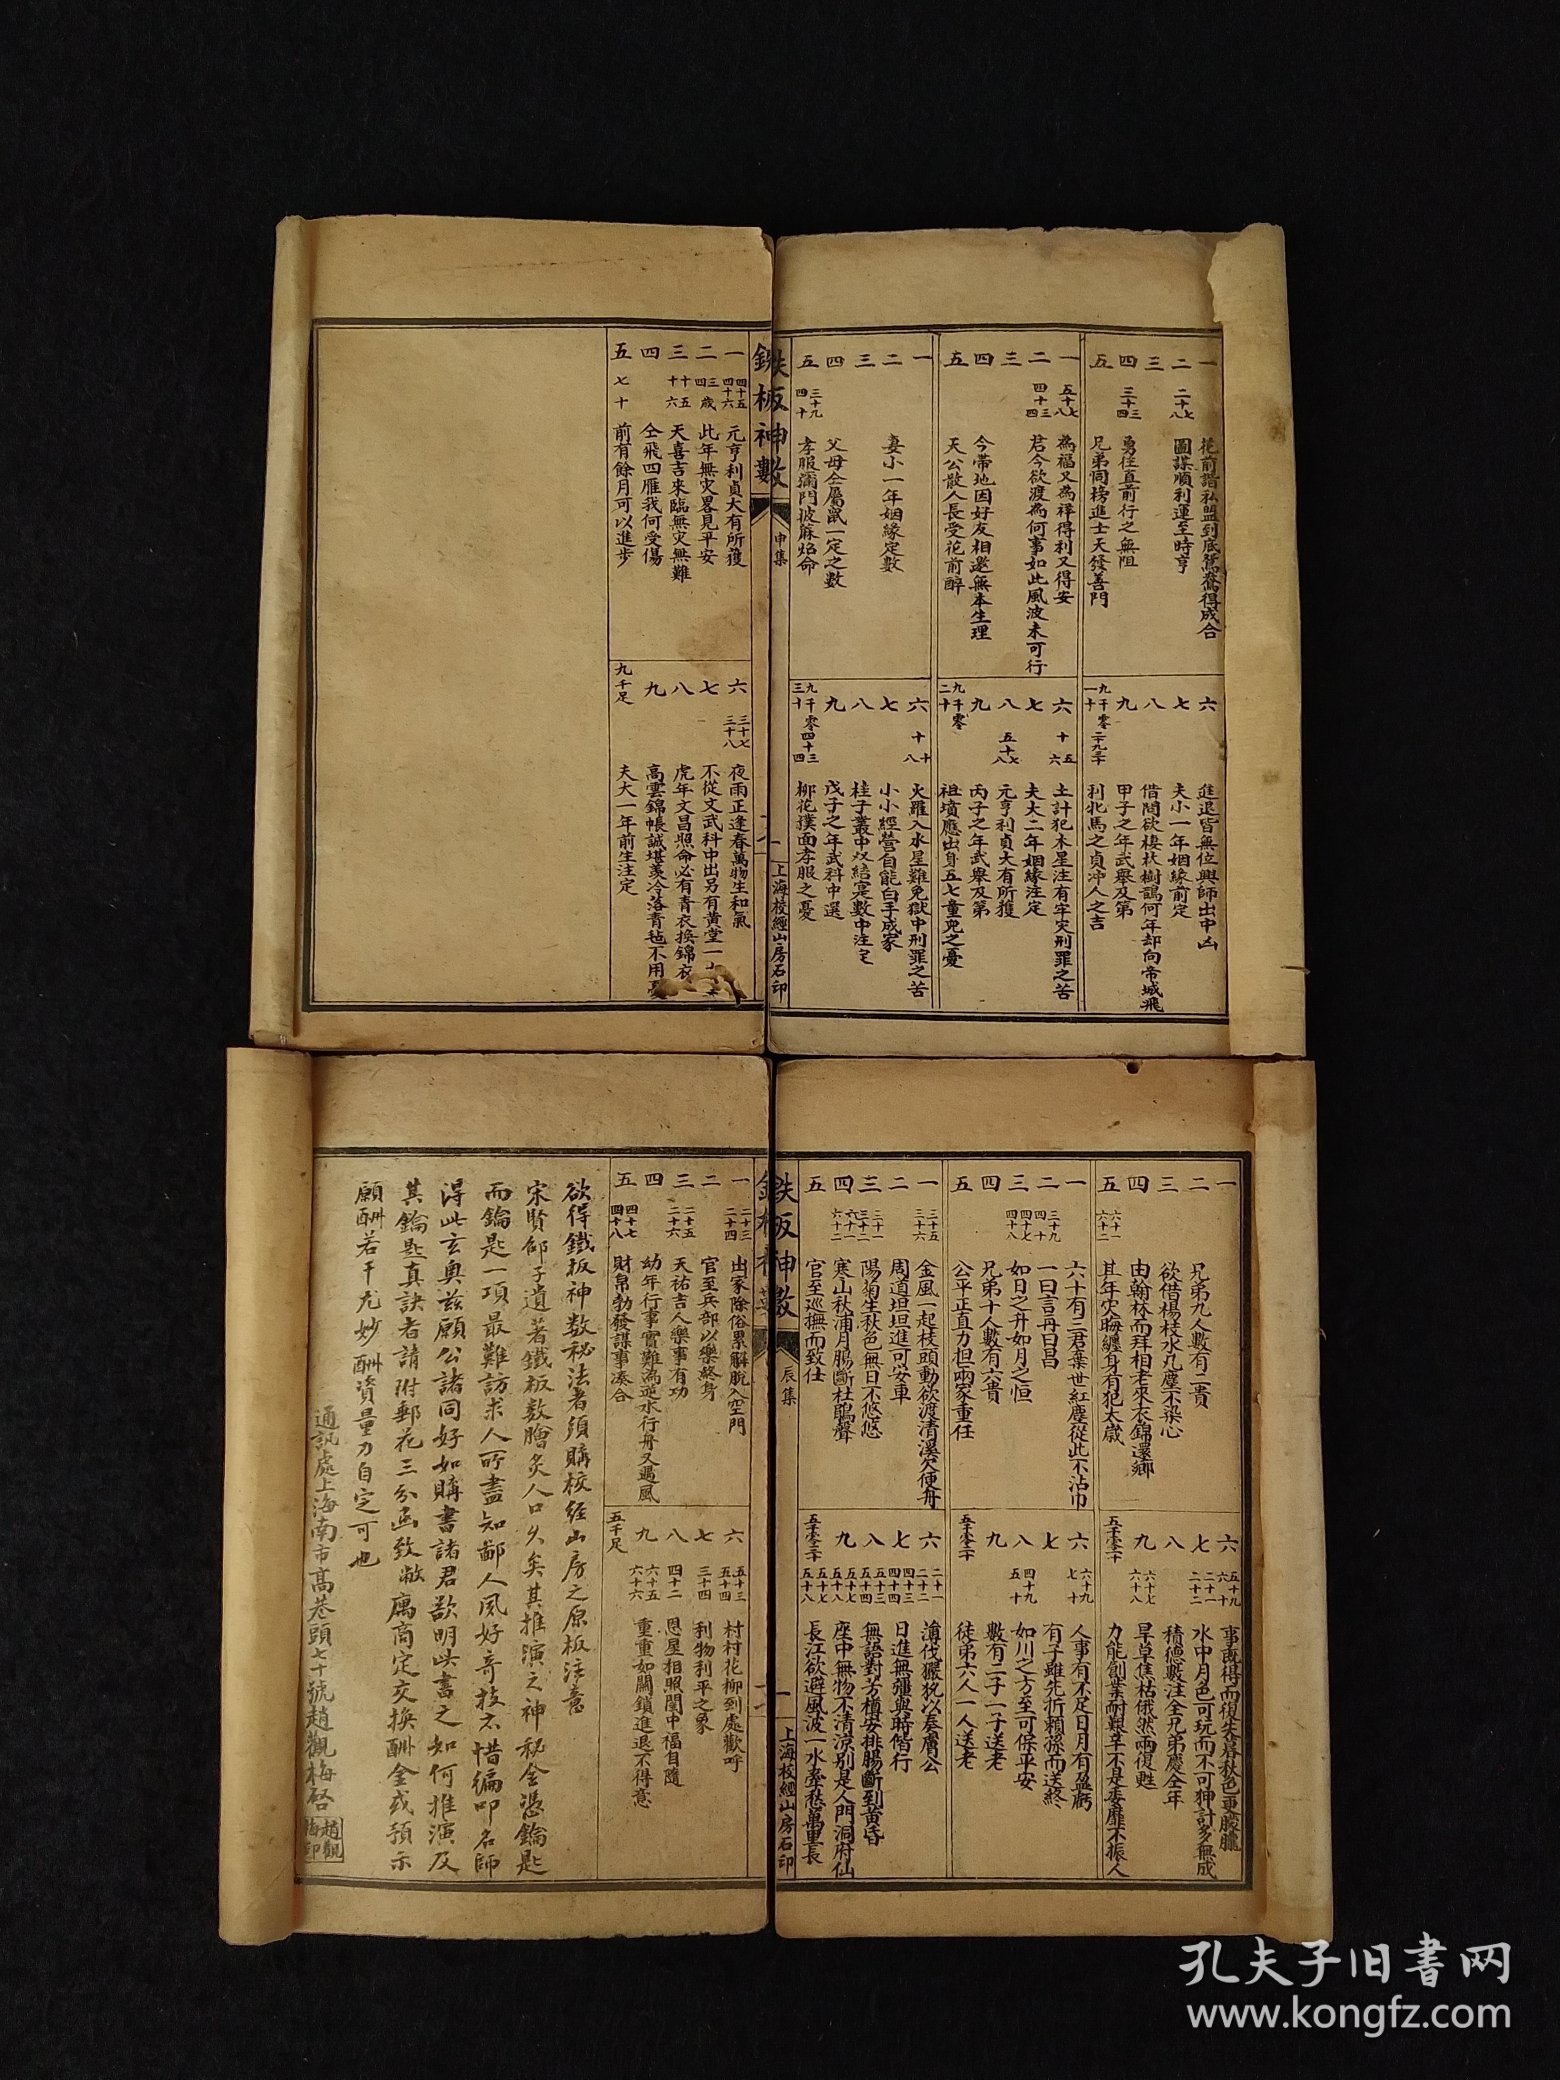 一
花前諧私盟到底鴛鴦得成合
二
二十七
二十八
圖謀順利運至時亨
三
四
三十三
三十四
勇往直前行之無阻
五
兄弟同榜進士天發善門
六
進退皆無位興師出中凶
七
夫小一年姻緣前定
八
借問欲棲林樹鵲何年却向帝城飛
九
甲子之年武舉及第
九千零二十
二十九
三十
利牝馬之貞沖人之吉
一
五十七
五十八
為福又為祥得利又得安
二
四十三
四十四
君今欲渡為何事如此風波未可行
三
四
今帶地因好友相邀無本生理
五
天公散人長受花前醉
六
十五
十六
土計犯木星注有牢灾刑罪之苦
七
夫大二年姻緣注定
八
五十七
五十八
元亨利貞大有所獲
九
丙子之年武舉及第
九千零二十
祖墳應出身五七童兒之憂
一
二
妻小一年姻緣定數
三
四
父母仝屬鼠一定之數
五
三十九
四十
孝服滿門披蔴焰命
六
十
十八
火羅入水星難免獄中刑罪之苦
七
小小經營自能白手成家
八
桂子叢中双結寔數中注定
九
戊子之年武科中選
九千零三十
四十三
四十四
柳花撲面孝服之憂
鉄板神數
申集
一
上海校經山房石印
一
四十五
四十六
元亨利貞大有所獲
二
三歲
四
此年無灾畧見平安
三
十五
十六
天喜吉來臨無灾無難
四
仝飛四雁我何受傷
五
七十
前有餘月可以進步
六
三十七
三十八
夜雨正逢春萬物生和氣
七
不從文武科中出另有黄堂一
八
虎年文昌照命必有青衣換錦衣
九
高雲錦帳誠堪羡冷落青毡不用憂
九千足
夫大一年前生注定
一
二
兄弟九人數有二貴
三
欲借楊枝水凡塵不染心
四
由翰林而拜相老來衣錦還鄉
五
六十一
六十二
其年灾晦纏身有犯太歲
六
五十九
六十
事既得而復失暮秋色更朦朧
七
二十一
二十二
水中月色可玩而不可狎計多無成
八
積德數注全兄弟慶仝年
九
六十七
六十八
旱草焦枯俄然雨復甦
五千零二十
力能創業耐艱辛不是委靡不振人
一
六十有三君棄世紅塵從此不沾巾
二
三十九
四十
一曰言再曰昌
三
四十七
四十八
如日之升如月之恒
四
兄弟十人數有六貴
五
公平正直力担兩家重任
六
六十九
七十
人事有不足日月有盈虧
七
有子雖先折賴孫而送終
八
四十九
五十
如川之方至可保平安
九
數有二子一子送老
五千零二十
徒弟六人一人送老
一
三十五
三十六
金風一起枝頭動欲渡清溪欠便舟
二
周道坦坦進可安車
三
三十一
三十二
陽菊生秋色無日不悠悠
四
六十一
六十二
寒山秋浦月腸斷杜鵑聲
五
官至巡撫而致仕
六
二十一
二十二
薄伐玁狁以奏膚公
七
四十三
四十四
日進無疆與時偕行
八
五十三
五十四
無語對芳樽安排腸斷到黄昏
九
五十七
五十八
座中無物不清涼别是人門洞府仙
五千零三十
五十七
五十八
長江欲避風波一水牽愁萬里長
鉄板神數
辰集
一
上海校經山房石印
一
二十三
二十四
出家除俗累解脱入空門
二
官至兵部以樂終身
三
二十五
二十六
天祐吉人樂事有功
四
幼年行事實難為逆水行舟又遇風
五
四十七
四十八
財帛勃發謀事湊合
六
五十三
五十四
村村花柳到處歡呼
七
三十四
利物利平之象
八
四十二
恩星相照閨中福自隨
九
六十五
六十六
重重如關鎖進退不得意
五千足
欲得鐵板神数秘法者須購校經山房之原板注意
宋賢邵子遺著鐵板数膾炙人口久矣其推演之神秘全憑鑰匙
而鑰匙一項最難訪求人所盡知鄙人夙好奇技不惜徧叩名師
得此玄奥兹願公諸同好如購書諸君欲明此書之如何推演及
其鑰匙真訣者請附郵花三分函致敝寓商定交換酬金或預示
願酬若干尤妙酬資量力自定可也
通訊處上海南市高巷頭七十號趙觀梅啓
趙觀梅印
孔夫子旧書网
www.kongfz.com